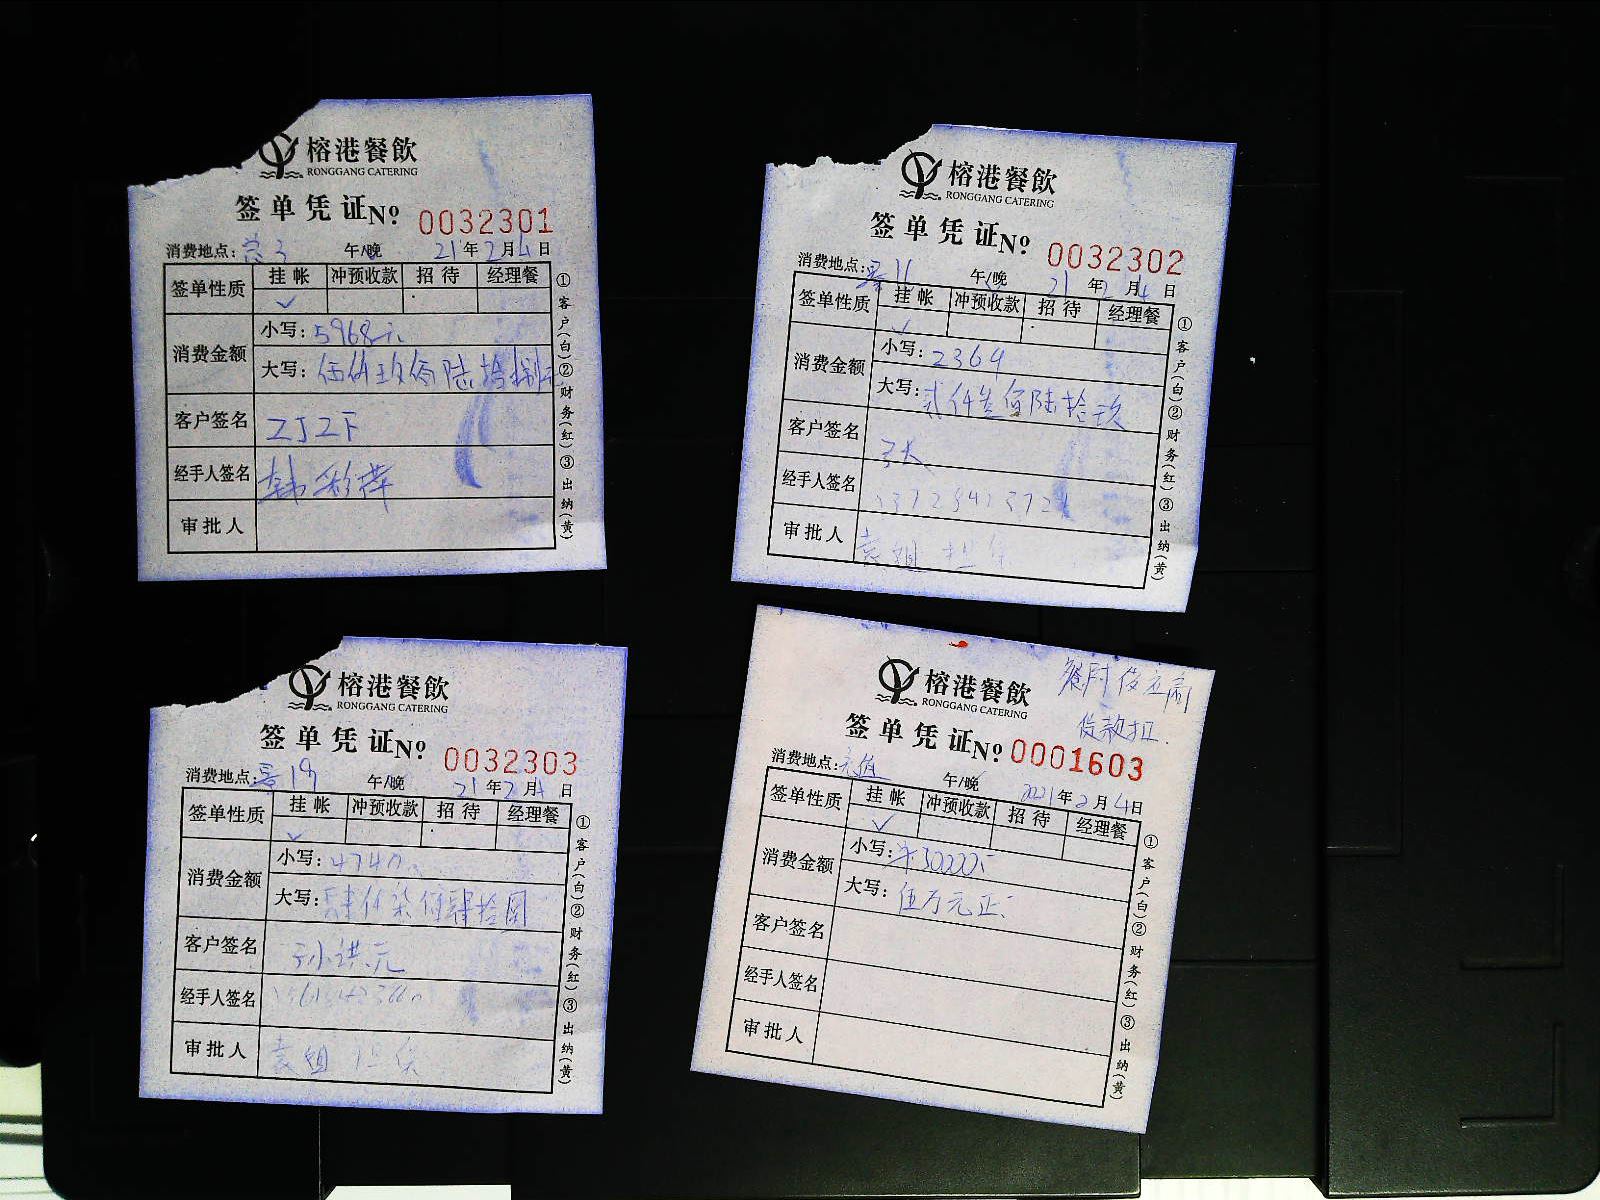 榕港餐飲
RONGGANG CATERING
签单凭证 Nº 0032301
消费地点: 午/晚 21年2月4日
签单性质 挂帐 冲预收款 招待 经理餐
✓
消费金额 小写: 5968元
大写: 伍仟玖佰陆拾捌元
客户签名 ZJZF
经手人签名 韩彩萍
审批人
①客户(白)②财务(红)③出纳(黄)
榕港餐飲
RONGGANG CATERING
签单凭证 Nº 0032302
消费地点: 11 午/晚 21年2月4日
签单性质 挂帐 冲预收款 招待 经理餐
✓
消费金额 小写: 2369
大写: 贰仟叁佰陆拾玖
客户签名
经手人签名
审批人 袁姐担保
①客户(白)②财务(红)③出纳(黄)
榕港餐飲
RONGGANG CATERING
签单凭证 Nº 0032303
消费地点: 19 午/晚 21年2月4日
签单性质 挂帐 冲预收款 招待 经理餐
✓
消费金额 小写: 4740元
大写: 肆仟柒佰肆拾圆
客户签名 孙洪元
经手人签名
审批人 袁姐担保
①客户(白)②财务(红)③出纳(黄)
榕港餐飲
RONGGANG CATERING
货款扣.
签单凭证 Nº 0001603
消费地点: 充值 午/晚 2021年2月4日
签单性质 挂帐 冲预收款 招待 经理餐
✓
消费金额 小写: ¥50000.-
大写: 伍万元正.
客户签名
经手人签名
审批人
①客户(白)②财务(红)③出纳(黄)